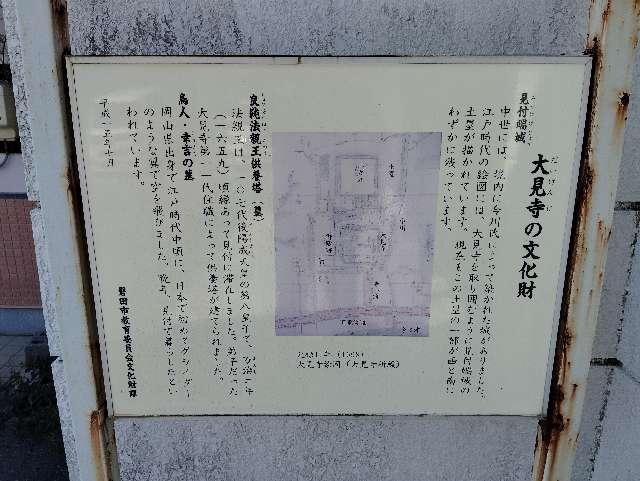 大見寺の文化財
だいけんじ
見付端城
中世には、境内に今川氏によって築かれた城がありました。
江戸時代の絵図には、大見寺を取り囲むように見付端城の
土塁が描かれています。現在もこの土塁の一部が西と南に
わずかに残っています。
大見寺絵図（大見寺所蔵）
良純法親王供養塔（墓）
法親王は、一〇七代後陽成天皇の第八皇子で、万治二年
（一六五九）頃縁あって見付に滞在しました。弟子だった
大見寺第一一代住職によって供養塔が建てられました。
鳥人・幸吉の墓
岡山県出身で江戸時代中頃に、日本で初めてグライダー
のような翼で空を飛びました。晩年、見付で暮らしたとい
われています。
平成一五年十月
磐田市教育委員会文化財課